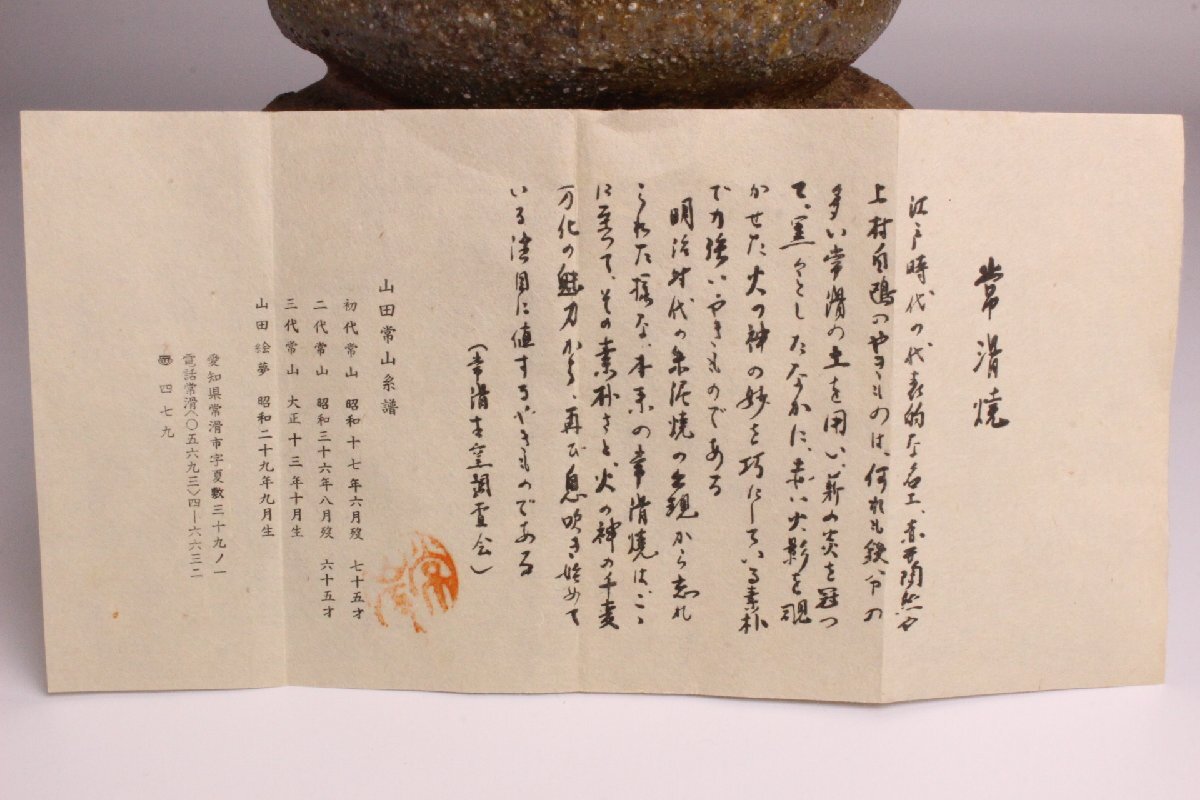 常滑焼
江戸時代の代表的な名工、赤井陶然や
上村白鴎のやきものは、何れも鉄分の
多い常滑の土を用い、薪の炎を冠つ
て、黒々としたなかに、赤い火影を覗
かせた火の神の妙を巧にしている素朴
で力強いやきものである
明治時代の朱泥焼の出現から忘れ
られた様な、本来の常滑焼は、ここ
に至つて、その素朴さと、火の神の千変
万化の魅力から、再び息吹き始めて
いる注目に値するやきものである
(常滑古窯調査会)
山田常山系譜
初代常山 昭和十七年六月歿 七十五才
二代常山 昭和三十六年八月歿 六十五才
三代常山 大正十三年十月生
山田絵夢 昭和二十九年九月生
愛知県常滑市字夏敷三十九ノ一
電話常滑〈〇五六九三〉四―六六三二
〒 四七九
常山